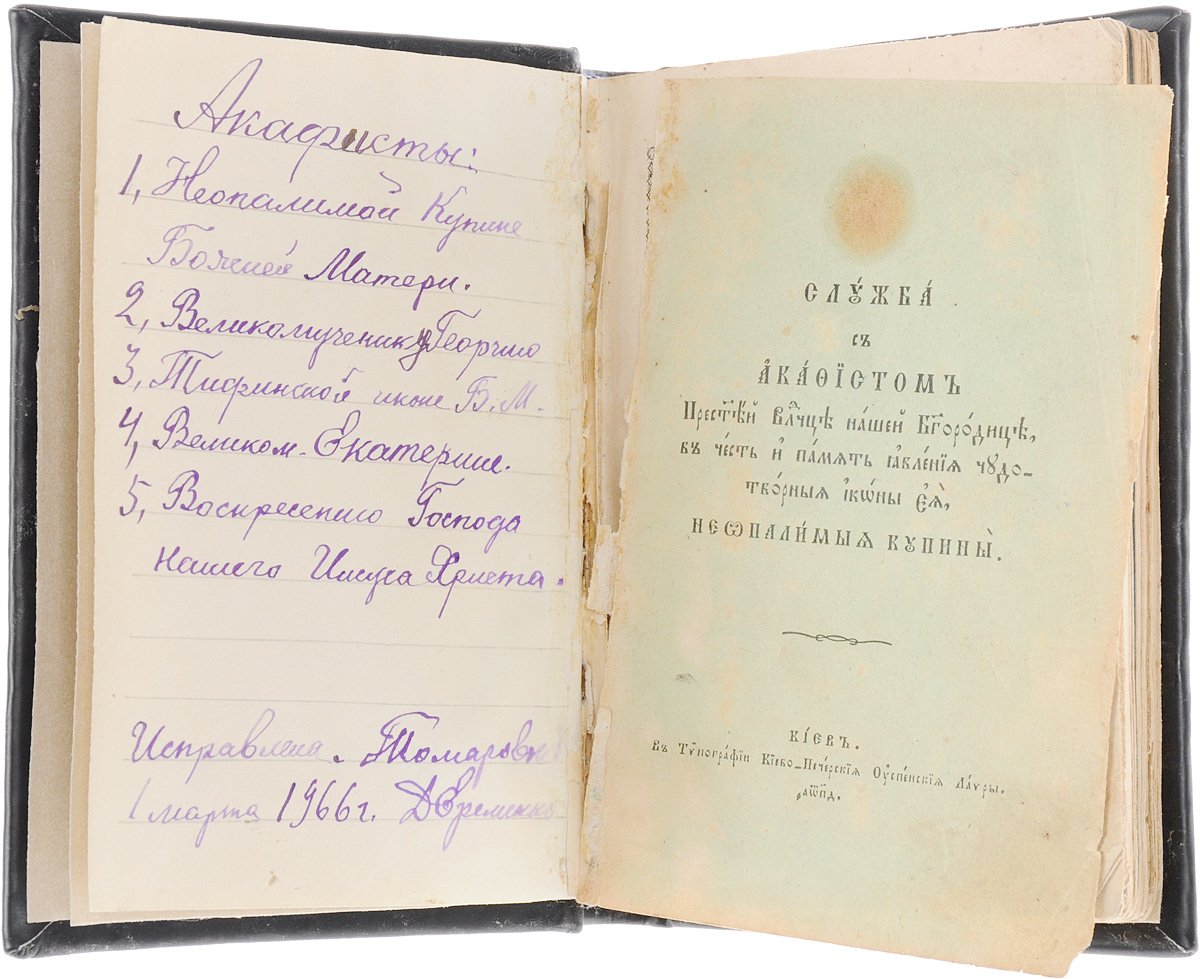 Акафисты:
1, Неопалимой Купине
Божией Матери.
2, Великомученику Георгию
3, Тифинской иконе Б. М.
4, Великом. Екатерине.
5, Воскресению Господа
нашего Иисуса Христа.
Исправлена.
1 марта 1966 г. ДЕременко
СЛꙊ́ЖБА́
съ
А҆КА́ѲЇСТОМЪ
Прест҃ѣ́й вл҃чцѣ на́шей Бг҃оро́дицѣ,
въ че́сть и҆ па́мѧть ꙗ҆вле́нїѧ чꙋдо-
тво́рныѧ і҆кѡ́ны є҆ѧ̀,
НЕѠПАЛИ́МЫѦ КꙊПИНЫ̀.
КІ́ЕВЪ.
Въ Тѷпогра́фїи Кїево-Пече́рскїѧ Оу҆спе́нскїѧ Ла́ѵры.